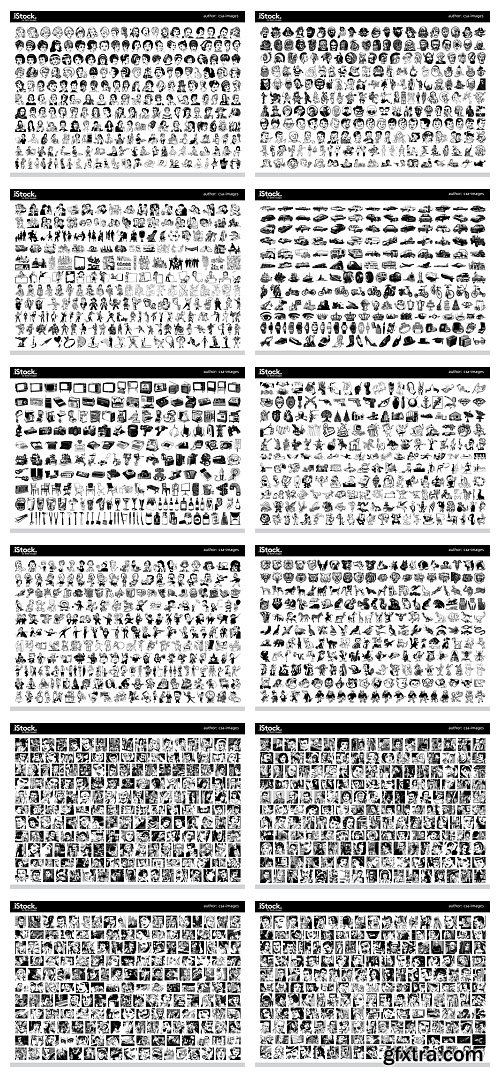 iStock. author: csa-images
iStock. author: csa-images
iStock. author: csa-images
iStock. author: csa-images
iStock. author: csa-images
iStock. author: csa-images
iStock. author: csa-images
iStock. author: csa-images
iStock. author: csa-images
iStock. author: csa-images
iStock. author: csa-images
iStock. author: csa-images
gfxtra.com